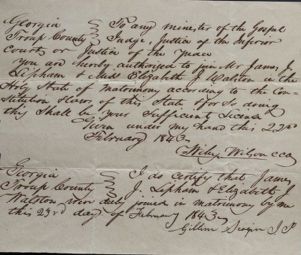 Georgia To any minister of the Gospel
Troup County Judge, Justice of the Inferior
Court or Justice of the Peace
You are hereby authorised to join Mr James J.
Lipham & Miss Elizabeth J Walston in the
Holy State of matrimony according to the Con-
stitution & laws of this State & for so doing
this Shall be your Sufficient License
Given under my hand this 22nd
February 1843
Wiley Wilson CCO
Georgia I do certify that James
Troup County J. Lipham & Elizabeth J
Walston were duly joined in matrimony by me
this 23rd day of February 1843
J P